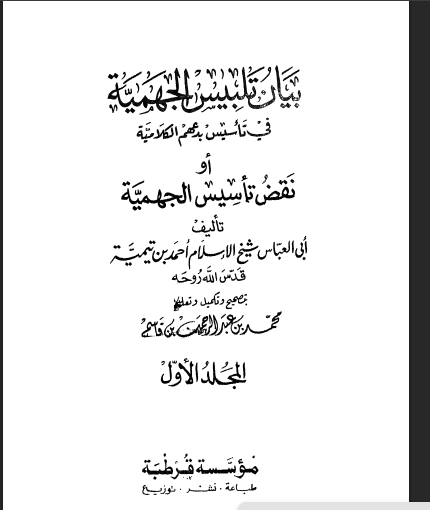 بيان تلبيس الجهمية
في تأسيس بدعهم الكلامية
أو
نقض تأسيس الجهمية
تأليف
أبي العباس شيخ الإسلام أحمد بن تيمية
قدس الله روحه
بتصحيح وتكميل وتعليق
محمد بن عبد الرحمن بن قاسم
المجلد الأول
مؤسسة قرطبة
طباعة . نشر . توزيع